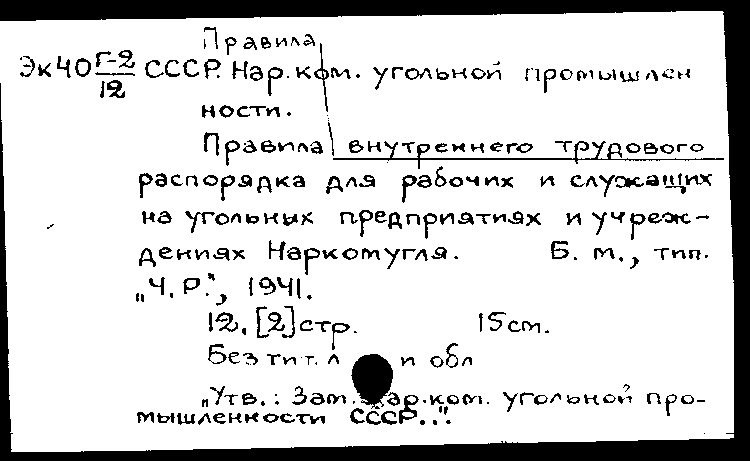 Правила
Эк40 Г-2/12 СССР. Нар. ком. угольной промышлен
ности.
Правила внутреннего трудового
распорядка для рабочих и служащих
на угольных предприятиях и учреж-
дениях Наркомугля. Б. м., тип.
„Ч. Р.", 1941.
12, [2] стр. 15 см.
Без тит. л и обл
„Утв.: Зам. нар.ком. угольной про-
мышленности СССР..."